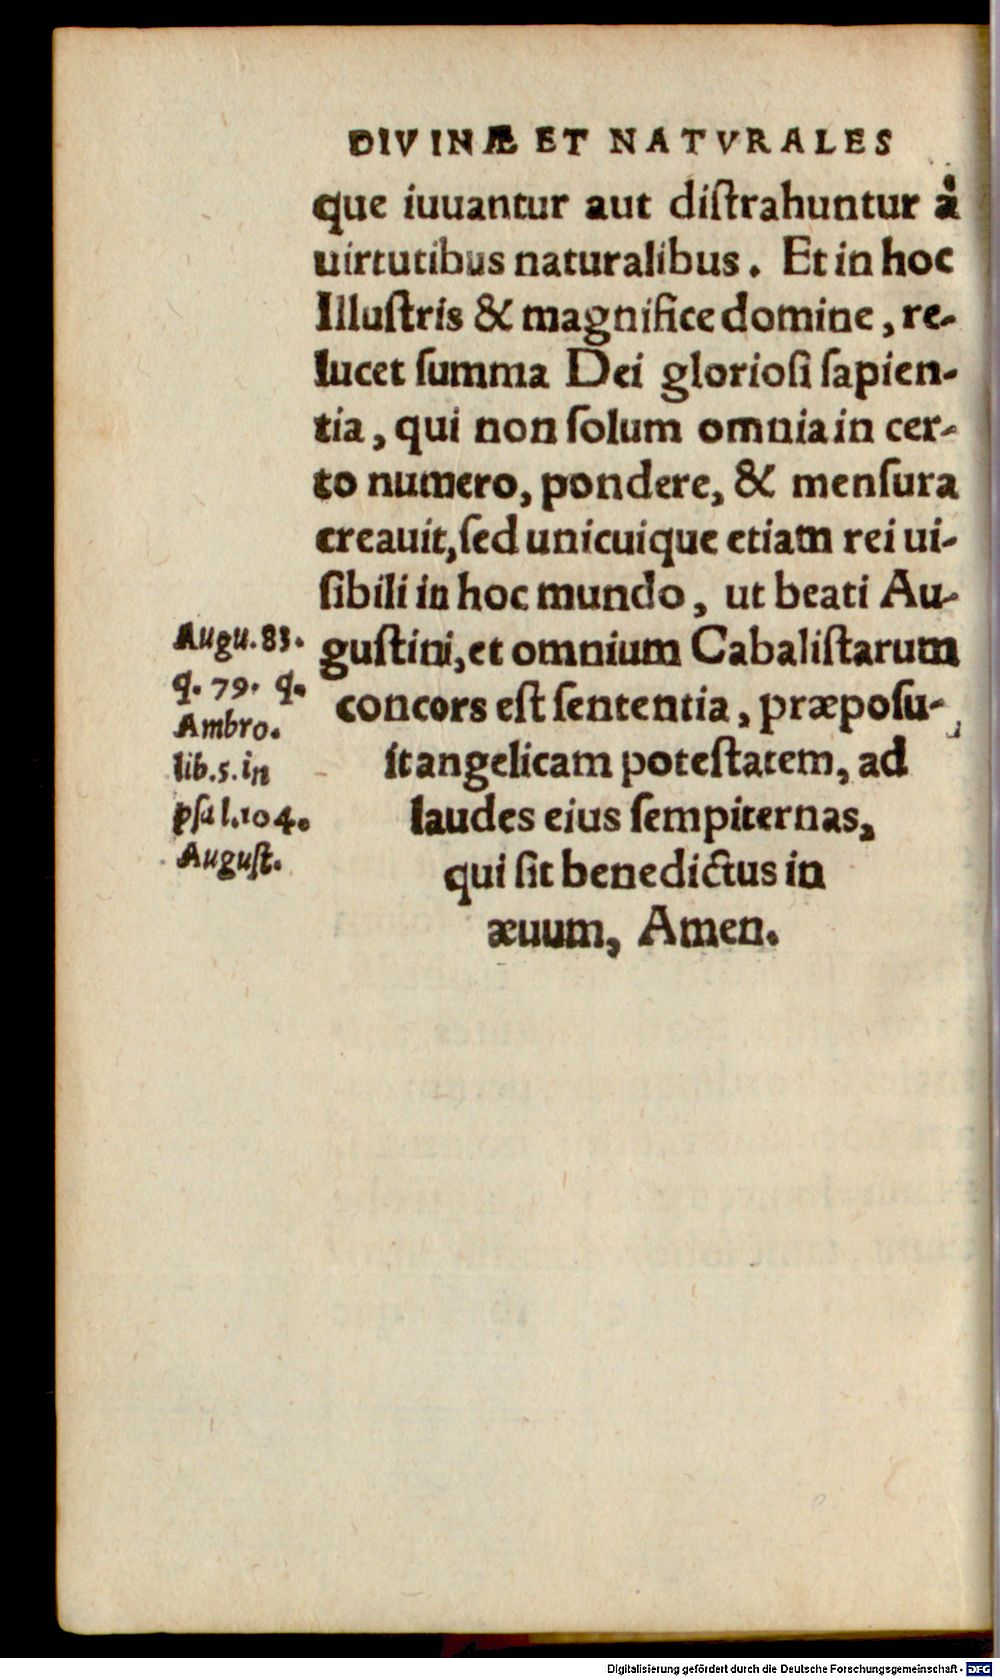 DIVINÆ ET NATVRALES
que iuuantur aut diſtrahuntur à
uirtutibus naturalibus. Et in hoc
Illuſtris & magnifice domine, re-
lucet ſumma Dei glorioſi ſapien-
tia, qui non ſolum omnia in cer-
to numero, pondere, & menſura
creauit, ſed unicuique etiam rei ui-
ſibili in hoc mundo, ut beati Au-
guſtini, et omnium Cabaliſtarum
concors eſt ſententia, præpoſu-
it angelicam poteſtatem, ad
laudes eius ſempiternas,
qui ſit benedictus in
æuum, Amen.
Augu. 83.
q. 79. q.
Ambro.
lib. 5. in
pſal. 104.
Auguſt.
Digitalisierung gefördert durch die Deutsche Forschungsgemeinschaft - DFG